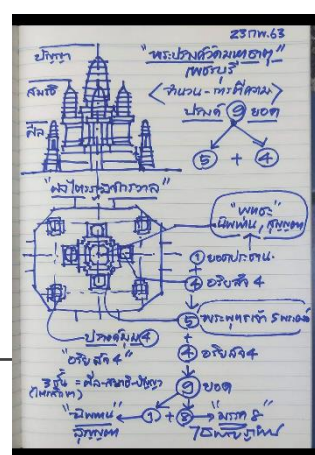 23 กพ. 63
"พระปรางค์วัดมหาธาตุ"
เพชรบุรี
<จำนวน-การตีความ>
ปรางค์ ⑨ ยอด
⑤ + ④
ปัญญา
สมาธิ
ศีล
"ผังไตรภูมิจักรวาล"
"พุทธะ"
นิพพาน, สุญญตา
① ยอดประธาน
+
④ อริยสัจ 4
⑤ พระพุทธเจ้า 5 พระองค์
+
④ อริยสัจ 4
⑨ ยอด
ปรางค์มุม ④
"อริยสัจ 4"
3 ชั้น = ศีล-สมาธิ-ปัญญา
(ไตรสิกขา)
"นิพพาน
สุญญตา
① + ⑧
"มรรค 8"